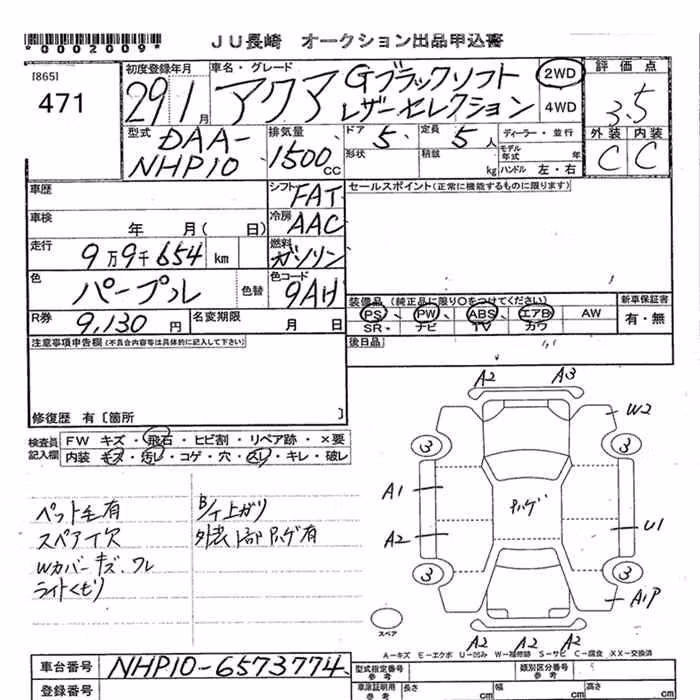 *0002009*
JU長崎 オークション出品申込書
[865]
471
初度登録年月
29 1月
車名・グレード
アクア Gブラックソフト
レザーセレクション
2WD
4WD
評価点
3.5
外装 内装
C C
型式
DAA-
NHP10
排気量
1500cc
ドア 5
定員 5人
形状
積載 kg
ディーラー・並行
モデル年式 年
ハンドル 左・右
車歴
シフト FAT
セールスポイント(正常に機能するものに限ります)
車検 年 月( 日)
冷房 AAC
走行 9万9千654 km
燃料 ガソリン
色 パープル
色替
色コード 9AH
装備品(純正品に限り○をつけてください)
新車保証書
PS、PW、ABS、エアB AW
有・無
R券 9,130円
名変期限 月 日
SR・ナビ TV カワ
注意事項申告欄(不具合内容等は具体的に記入して下さい)
後日品
修復歴 有[箇所 ]
検査員記入欄
FW キズ・飛石・ヒビ割・リペア跡・×要
内装 キズ・汚レ・コゲ・穴・スレ・キレ・破レ
ペット毛有
スペアイ欠
Wカバーキズ、ワレ
ライトくもり
B/イ上ガリ
外装下部ハゲ有
A2 A3
W2
3 3
A1
ハゲ
A2
U1
3 3
A1P
A2 A2 A2
スペア
A-キズ E-エクボ U-凹み W-補修跡 S-サビ C-腐食 XX-交換済
車台番号 NHP10-6573774
型式指定番号 参考
類別区分番号 参考
登録番号
車庫証明用 参考
長さ cm
幅 cm
高さ cm